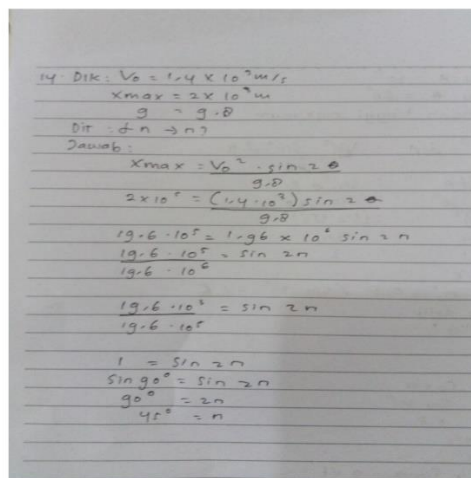 14. Dik: Vo = 1,4 x 10³ m/s
xmax = 2 x 10⁵ m
g = 9.8
Dit : α n → n?
Jawab:
xmax = Vo² . sin 2 θ
9.8
2 x 10⁵ = (1,4 . 10³) sin 2 θ
9.8
19.6 . 10⁵ = 1.96 x 10⁶ sin 2n
19.6 . 10⁵ = sin 2n
19.6 . 10⁶
19.6 . 10⁵ = sin 2n
19.6 . 10⁵
1 = sin 2n
sin 90° = sin 2n
90° = 2n
45° = n